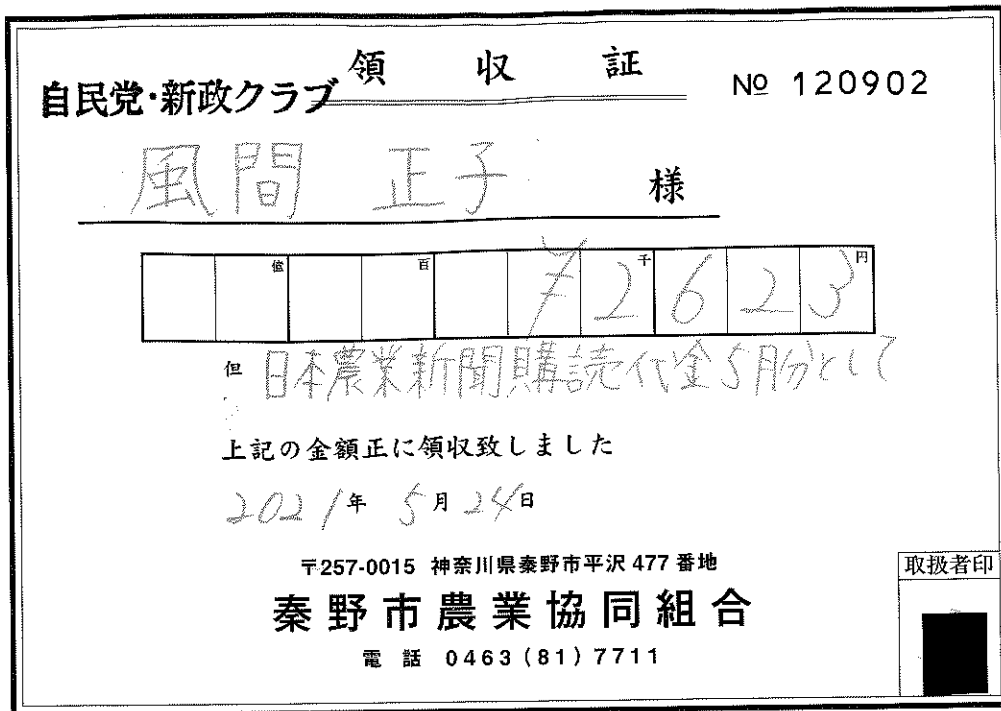 領収証
自民党・新政クラブ
№ 120902
風間 正子 様
億 百 千 円
¥2623
但 日本農業新聞購読代金5月分として
上記の金額正に領収致しました
2021年 5月 24日
〒257-0015 神奈川県秦野市平沢 477 番地
取扱者印
秦野市農業協同組合
電話 0463 (81) 7711